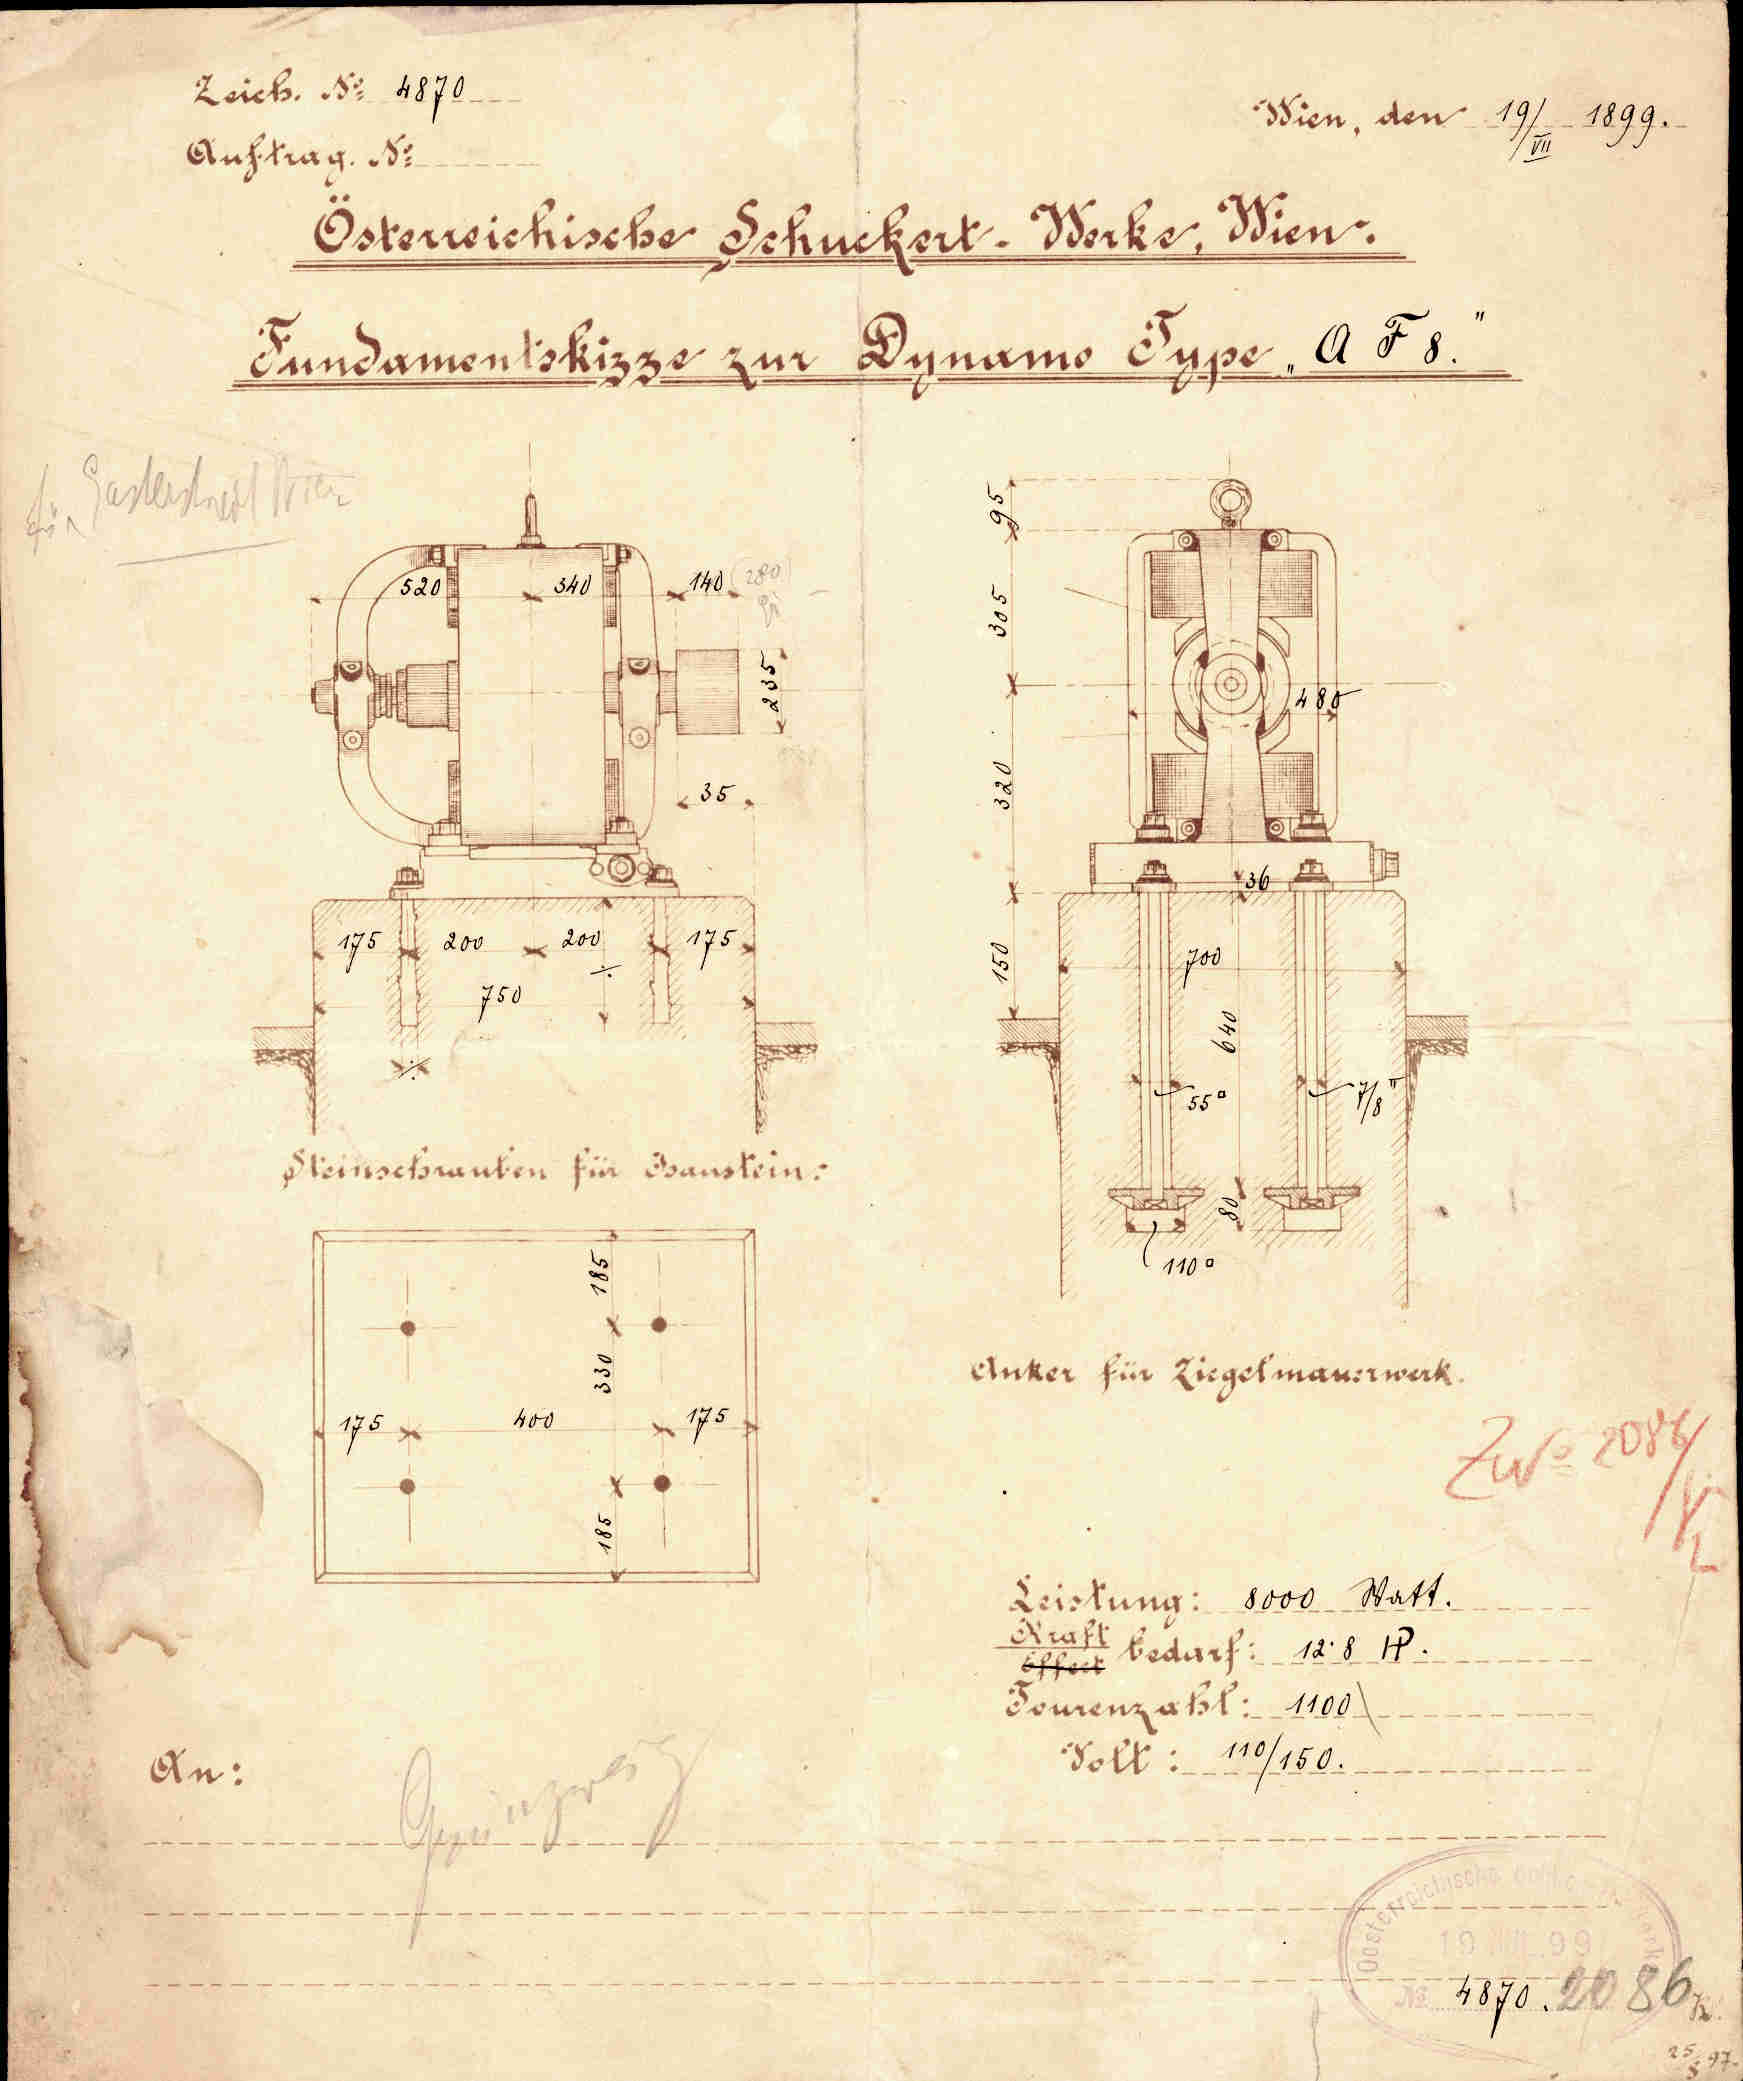 Zeich. No 4870
Wien, den 19/VII 1899.
Auftrag. No
Österreichische Schuckert-Werke, Wien.
Fundamentskizze zur Dynamo Type „A F 8."
für
95
520 340 140 (280)
305
235
480
35
320
36
175 200 200 175
150
700
750
640
55□ 7/8"
Steinschrauben für Haustein:
80
110□
185
330
Anker für Ziegelmauerwerk.
175 400 175
185
2086
Leistung: 8000 Watt.
Kraft
Effect bedarf: 12·8 HP.
Tourenzahl: 1100
Volt: 110/150.
An:
Oesterreichische
19 JUL. 99
No 4870. 2086
25/8 97.